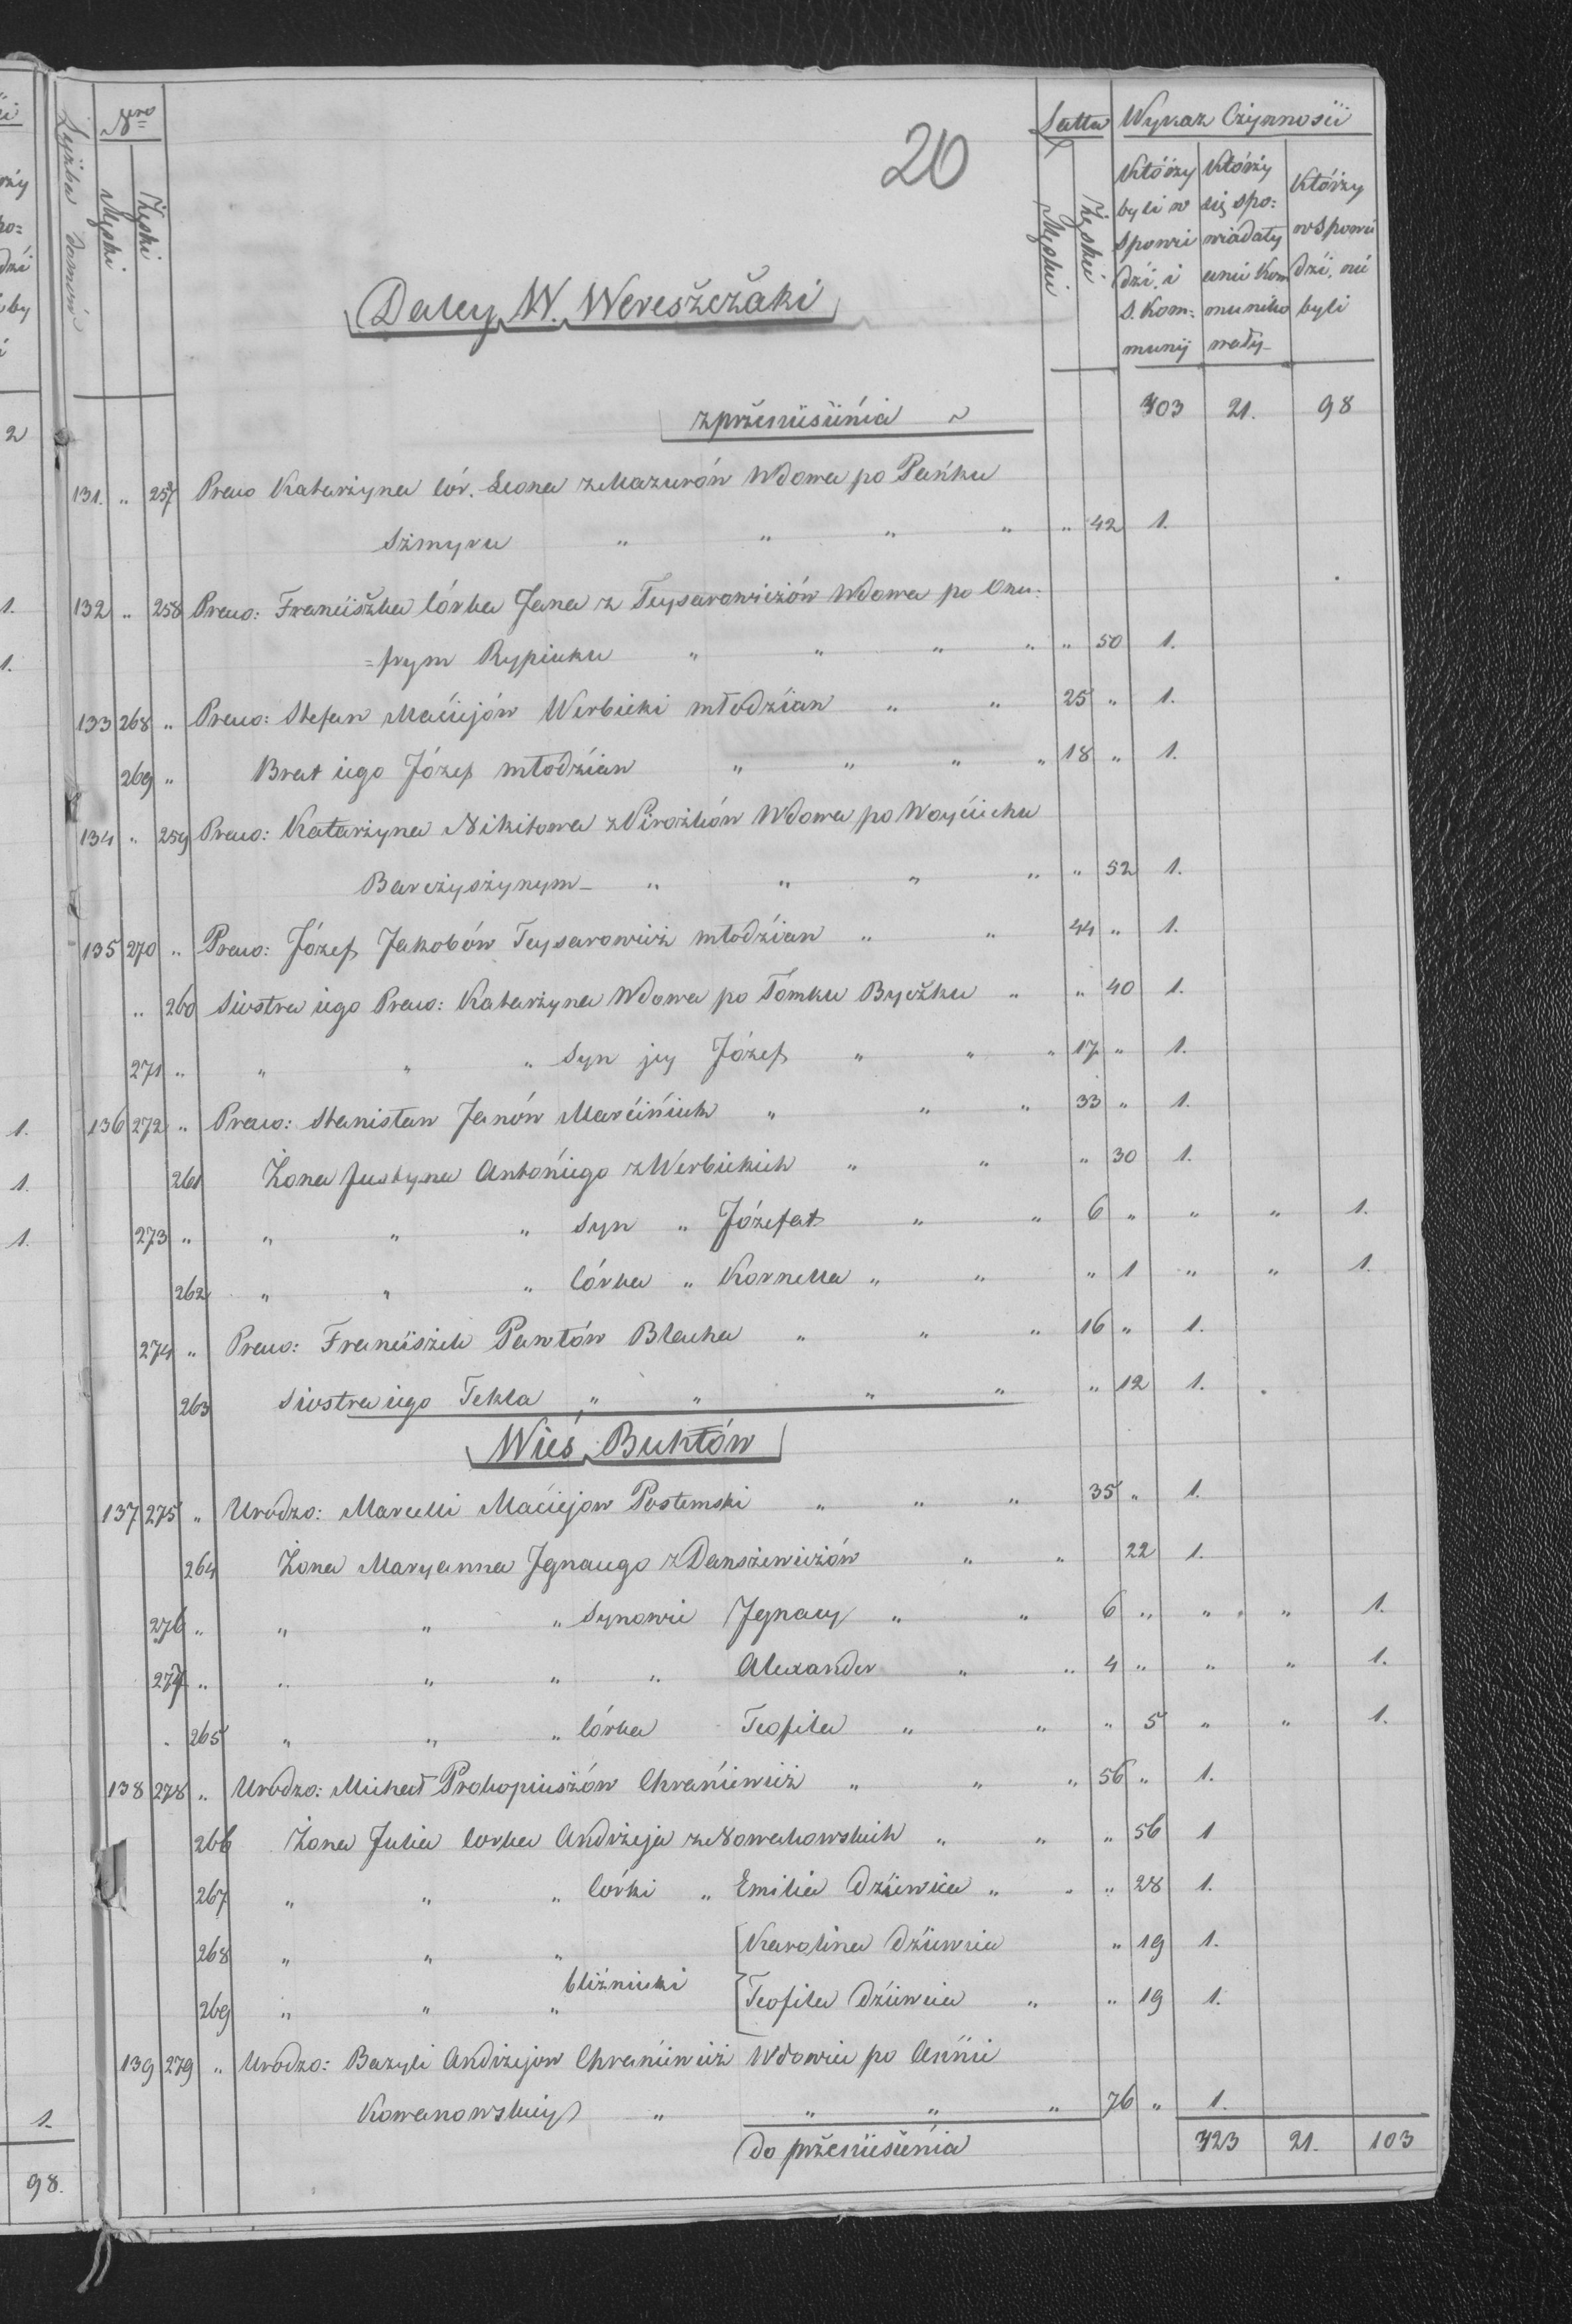 20
Liczba domów
Nro
Męski
Żęski
Latta
Męskie
Żęskie
Wykaz Czynności
Którzy byli w spowie dzi, i S. Kom: munij
Którzy się spo: wiadały a nie Kom muniko wały
Którzy w spowie dzi, nie byli
Daley W. Wereszczaki
z przeniesienia 403 21. 98
131. " 257 Praco Katarzyna Cór. Leona z Mazurów Wdowa po Pańku
Szmyru " " " " " 42 1.
132 " 258 Praco: Franciszka Córka Jana z Teysarowiczów Wdowa po Onu:
=frym Rypiuku " " " " " 50 1.
133 268 " Praco: Stefan Maciejów Werbicki młodzian " " 25 " 1.
269 " Brat iego Józef młodzian " " " " 18 " 1.
134 " 259 Praco: Katarzyna Nikitowa z Pirożków Wdowa po Woyciechu
Barczyszynym " " " " " 52 1.
135 270 " Praco: Józef Jakobów Teysarowicz młodzian " " 44 " 1.
" 260 Siostra iego Praco: Katarzyna Wdowa po Tomku Byczku " " 40 1.
271 " " " " Syn jey Józef " " " 17 " 1.
136 272 " Praco: Stanisław Janów Marciniuk " " " 33 " 1.
261 Żona Justyna Antoniego z Werbickich " " " 30 1.
273 " " " " Syn " Józefat " " 6 " " " 1.
262 " " " Córka " Kornella " " " 1 " " 1.
274 " Praco: Franciszek Pawłów Blacha " " " 16 " 1.
263 Siostra iego Tekla " " " " " 12 1.
Wieś Buktów
137 275 " Urodzo: Marcelli Maciejow Postemski " " " 35 " 1.
264 Żona Maryanna Jgnacego z Danszewiczów " " 22 1.
276 " " " " Synowie Jgnacy " " 6 " " " 1.
277 " " " " " Alexander " " 4 " " " 1.
265 " " " Córka Teofila " " " 5 " " 1.
138 278 " Urodzo: Michał Prokopiuszów Chraniewicz " " " 56 " 1.
266 Żona Julia Corka Andrzeja z Nowakowskich " " " 56 1
267 " " " Córki " Emilia Dziewica " " " 28 1.
268 " " " Karolina Dziewica " 19 1.
bliźniuki
269 " " " Teofila Dziewica " " 19 1.
139 279 " Urodzo: Bazyli Andrzejow Chraniewicz Wdowiec po Annie
Kowanowskiey " " " " 76 " 1.
do przeniesienia 423 21. 103